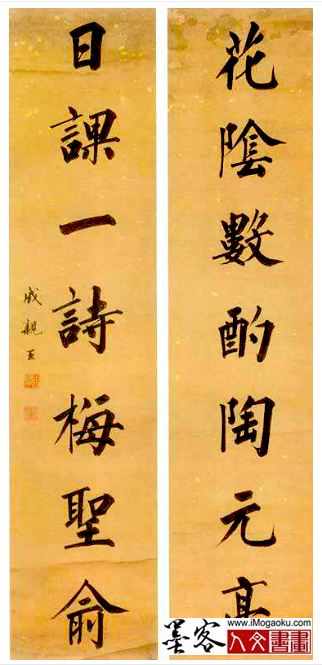 花陰數酌陶元亮
日課一詩梅聖俞
成親王
www.iMogaoku.com
墨客
人文書畫